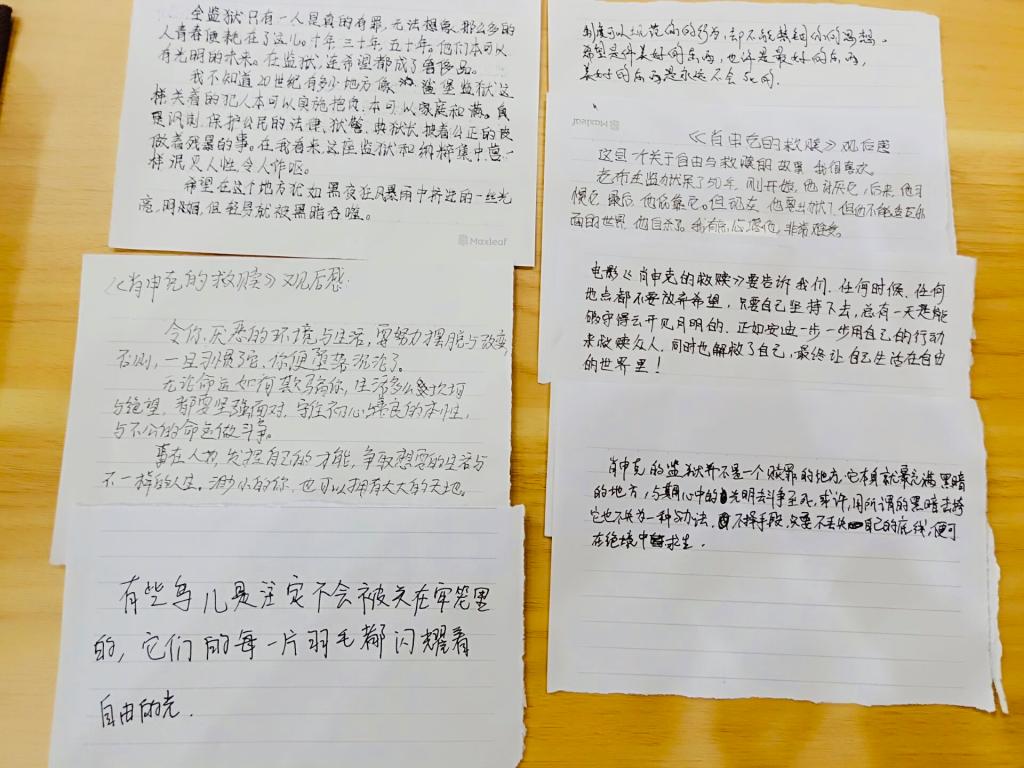 全监狱只有一人是真的有罪,无法想象,那么多的
人青春便耗在了这儿。十年,三十年,五十年。他们本可以
有光明的未来。在监狱,连希望都成了奢侈品。
我不知道20世纪有多少地方像 鲨堡监狱这
样关着的犯人本可以实施抱负,本可以家庭和满。真
是讽刺,保护公民的法律、狱警、典狱长,披着公正的皮
做着残暴的事。在我看来,这座监狱和纳粹集中营一
样泯灭人性,令人作呕。
希望在这个地方犹如黑夜狂风暴雨中挤进的一丝光
亮,明媚,但轻易就被黑暗吞噬。
Maxleaf
《肖申克的救赎》观后感:
令你厌恶的环境与生活,要努力摆脱与改变,
否则,一旦习惯了它,你便堕落沉沦了。
无论命运如何欺骗你,生活多么坎坷
与绝望,都要坚强面对,守住初心,善良的本性,
与不公的命运做斗争。
事在人为,发挥自己的才能,争取想要的生活与
不一样的人生。渺小的你,也可以拥有大大的天地。
有些鸟儿是注定不会被关在牢笼里
的,它们的每一片羽毛都闪耀着
自由的光.
制度可以规范你的行为,却不能禁锢你的思想。
希望是件美好的东西,也许是最好的东西,
美好的东西是永远不会死的.
Maxleaf
《肖申克的救赎》观后感
这是个关于自由与救赎的故事,我很喜欢。
老布在监狱呆了50年,刚开始,他讨厌它,后来,他习
惯它,最后,他依靠它。但现在,他要出狱了,但他不能适应外
面的世界,他自杀了。我有点心疼他,非常难受。
电影《肖申克的救赎》要告诉我们,任何时候、任何
地点都不要放弃希望,只要自己坚持下去,总有一天是能
够守得云开见月明的,正如安迪一步一步用自己的行动
来救赎众人,同时也解救了自己,最终让自己生活在自由
的世界里!
肖申克的监狱并不是一个赎罪的地方,它本身就是充满黑暗
的地方,与期心中的光明去斗争至死,或许,用所谓的黑暗去
它也不失为一种好办法,不择手段,只要不丢失自己的底线,便可
在绝境中求生.